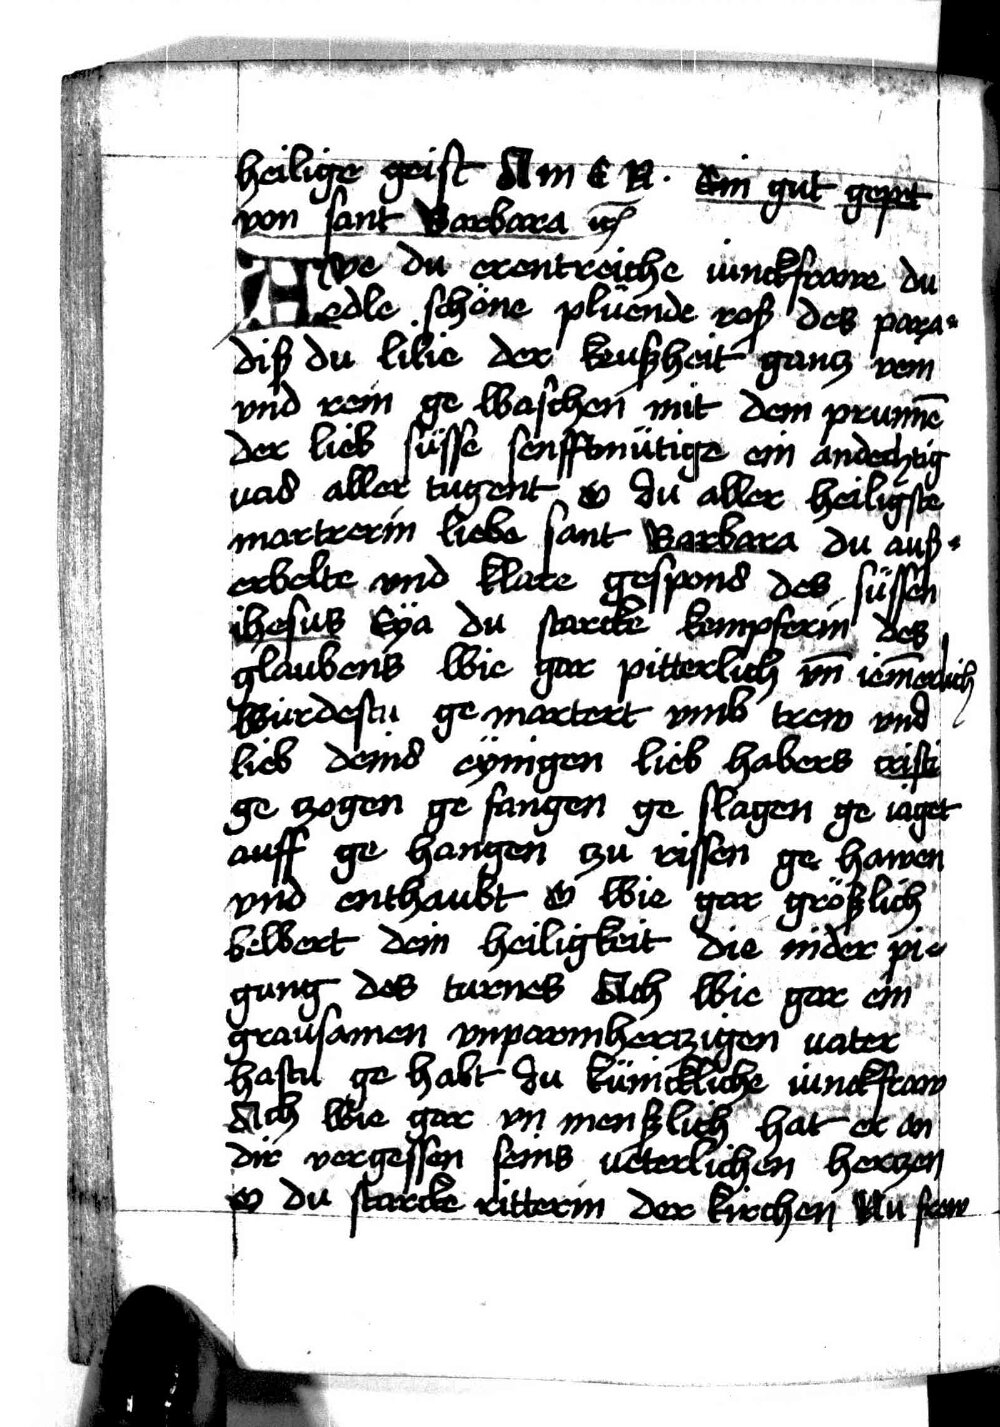 heilige geist AmEN. Ein gut gepet
von sant Barbara
Ave du erentreiche iunckfrawe du
edle schöne plüende roß des para-
diß du lilie der keußheit gantz vein
vnd rein ge waschen mit dem prunnē
der lieb süsse senfftmütige ein andechtig
vas aller tugent O du aller heiligste
martrerin liebe sant Barbara du auß-
erbelte vnd klare gespons des süssen
ihesus Eya du starcke kempferin des
glaubens wie gar pitterlich vn̄ iem̄erlich
würdestu ge martert vmb trew vnd
lieb deins eynigen lieb habers cristi
ge zogen ge fangen ge slagen ge iaget
auff ge hangen zu rissen ge hawen
vnd enthaubt O wie gar größlich
bewert dein heiligkeit die nider pi-
gung des turnes Ach wie gar ein
grausamen vnparmhertzigen vater
hastu ge habt du künickliche iunckfraw
Ach wie gar vn menßlich hat er an
dir vergessen seins veterlichen hertzen
O du starcke ritterin der kirchen Nu frew